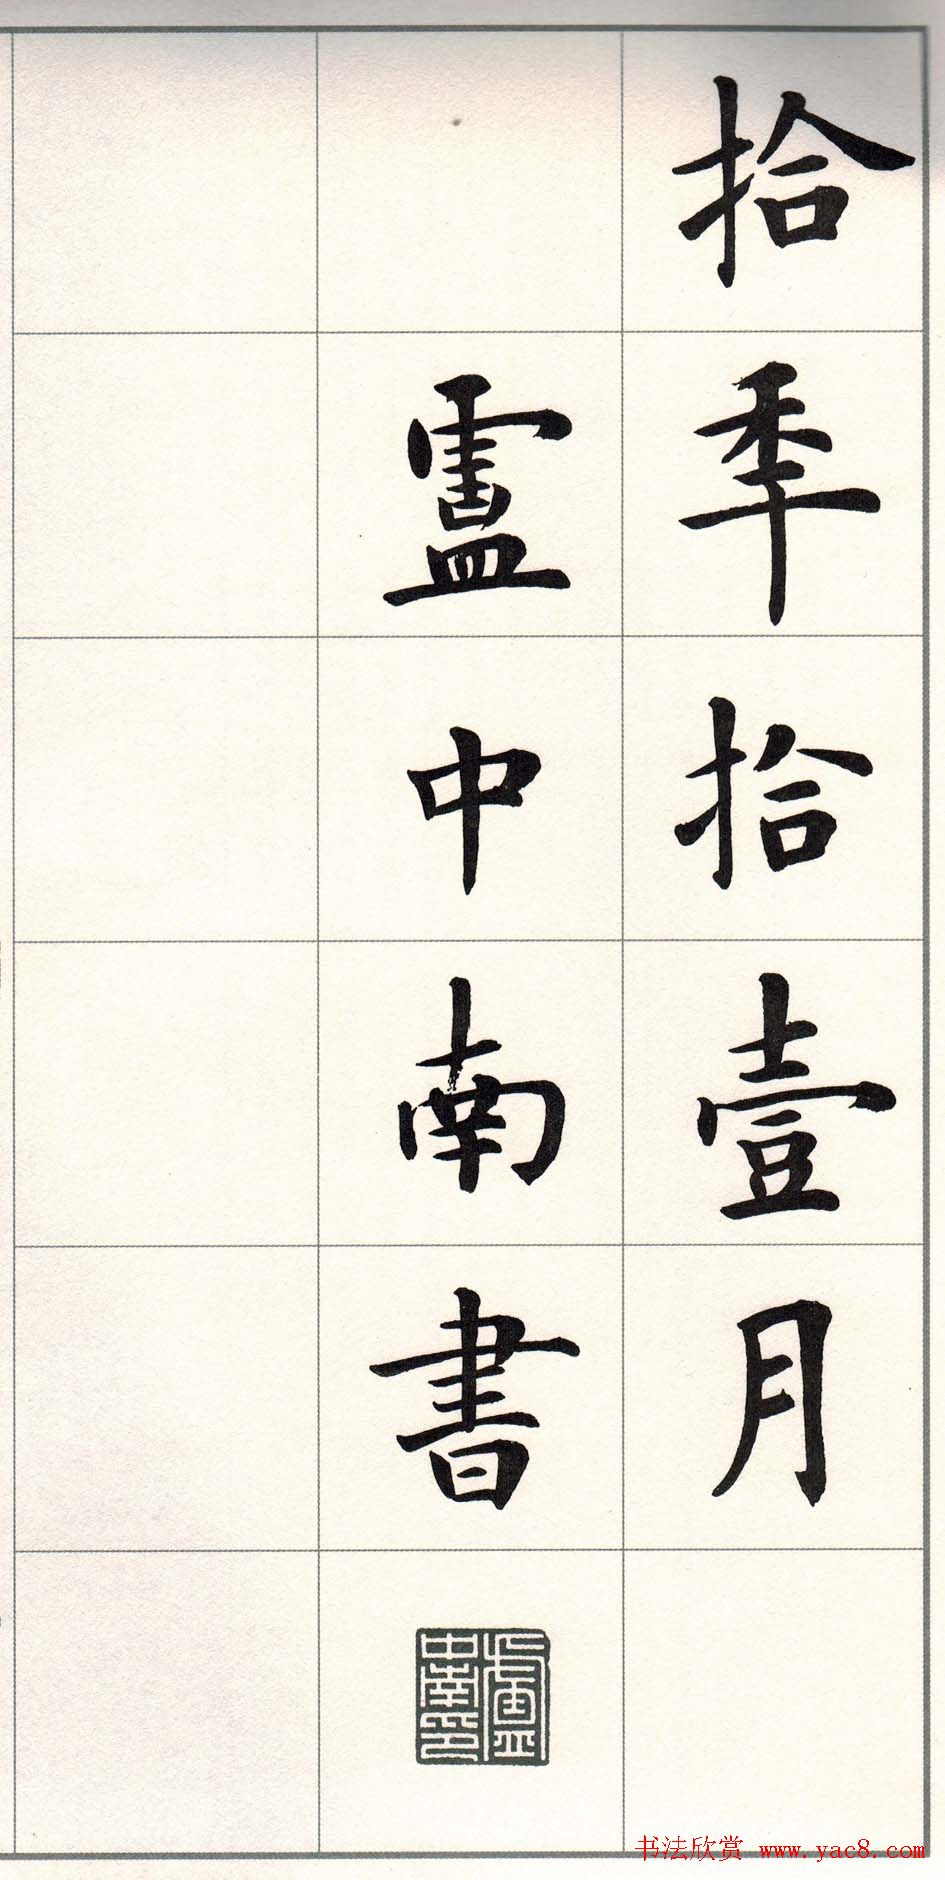 拾秊拾壹月
盧中南書
盧中南印
书法欣赏 www.yac8.com